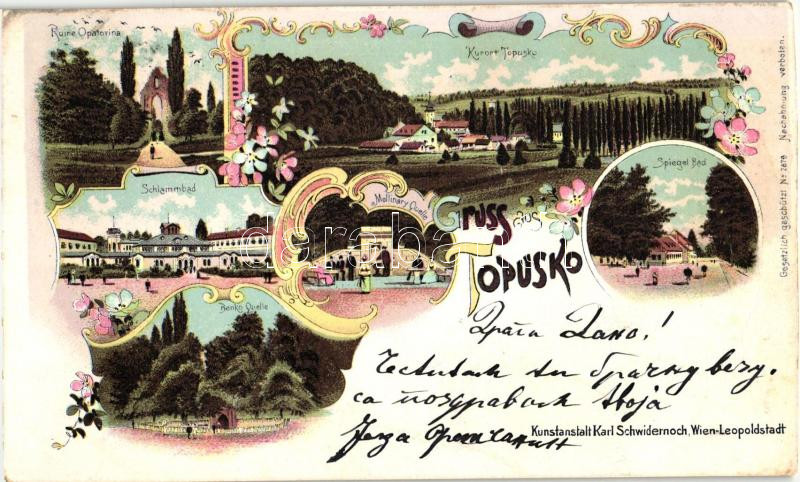 Ruine Opatovina
Kurort Topusko
Schlammbad
Mollinary Quelle
Spiegel Bad
Benko Quelle
Gruss aus
Topusko
darabanth
Драга Дано!
Честитам ти брачну везу.
са поздравом твоја
Језа
Kunstanstalt Karl Schwidernoch, Wien-Leopoldstadt
Gesetzlich geschützt Nr 2676 Nachahmung verboten.